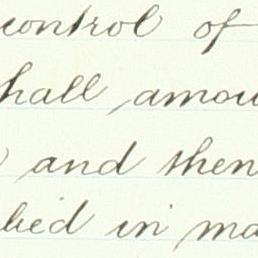 control of
hall amou
and then
lied in ma